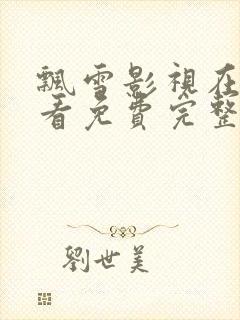 飄雪影視在
看免費完整
劉世美